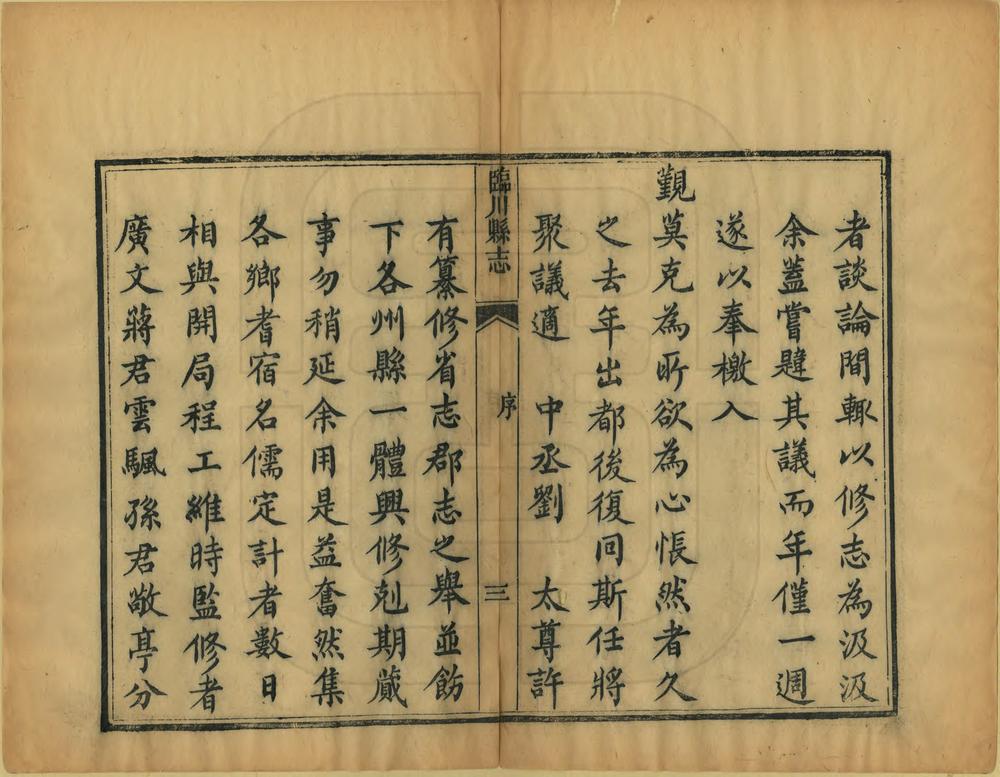 者談論間輒以修志為汲汲
余蓋嘗韙其議而年僅一週
遂以奉檄入
覲莫克為所欲為心悵然者久
之去年出都後復回斯任將
聚議適　中丞劉　太尊許
臨川縣志
序
三
有纂修省志郡志之舉並飭
下各州縣一體興修剋期蕆
事勿稍延余用是益奮然集
各鄉耆宿名儒定計者數日
相與開局程工維時監修者
廣文蔣君雲驪孫君敬亭分